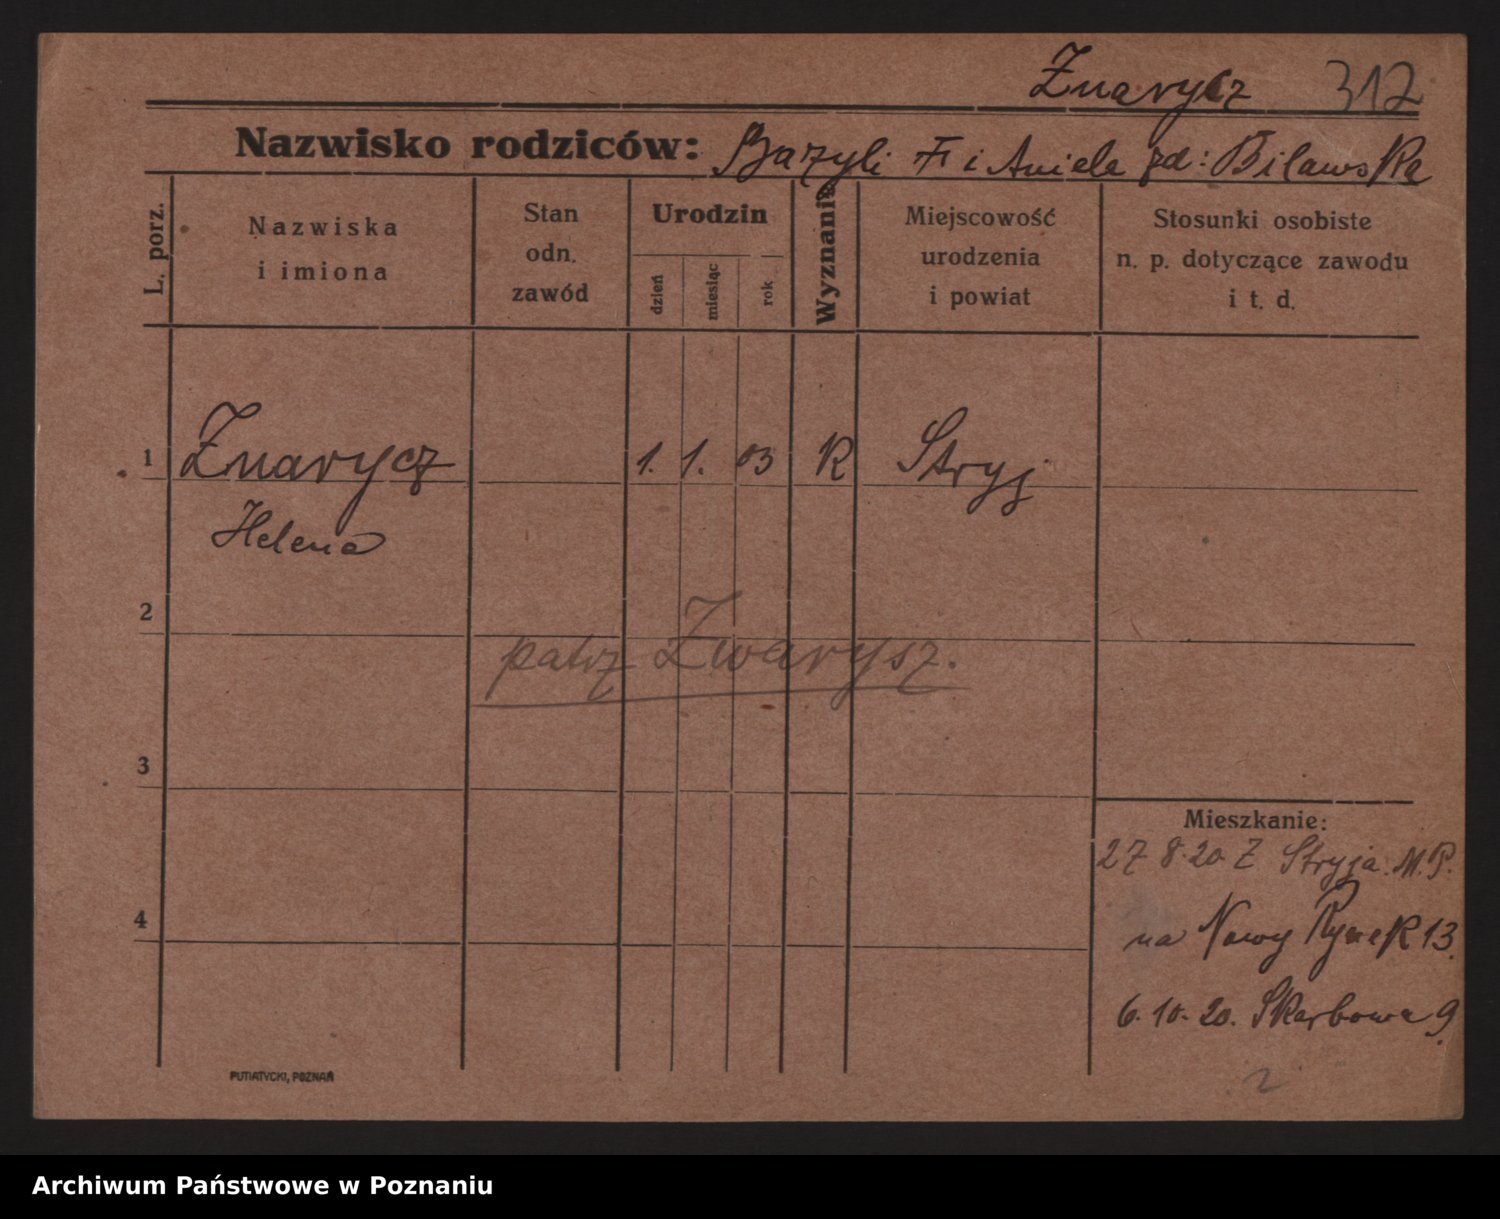 Znarycz 312
Nazwisko rodziców: Bazyli i Aniela Bilawska
L. porz.
Nazwiska
i imiona
Stan
odn.
zawód
Urodzin
dzień
miesiąc
rok
Wyznanie
Miejscowość
urodzenia
i powiat
Stosunki osobiste
n. p. dotyczące zawodu
i t. d.
1 Znarycz 1. 1. 03 K Stryj
Helena
2
patrz Zwarysz.
3
Mieszkanie:
27 8. 20. Z Stryja. M. P.
4
na Nowy Rynek 13.
6. 10. 20. Skarbowa 9.
2
PUTIATYCKI, POZNAŃ
Archiwum Państwowe w Poznaniu